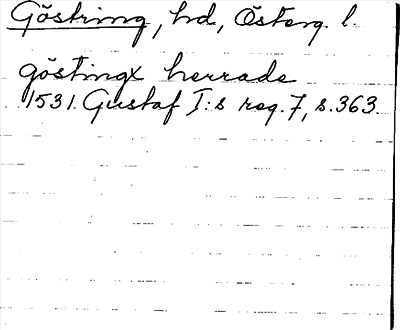 Göstring, hd, Österg. l.
göstingx herrade
1531. Gustaf I:s reg. 7, s. 363.